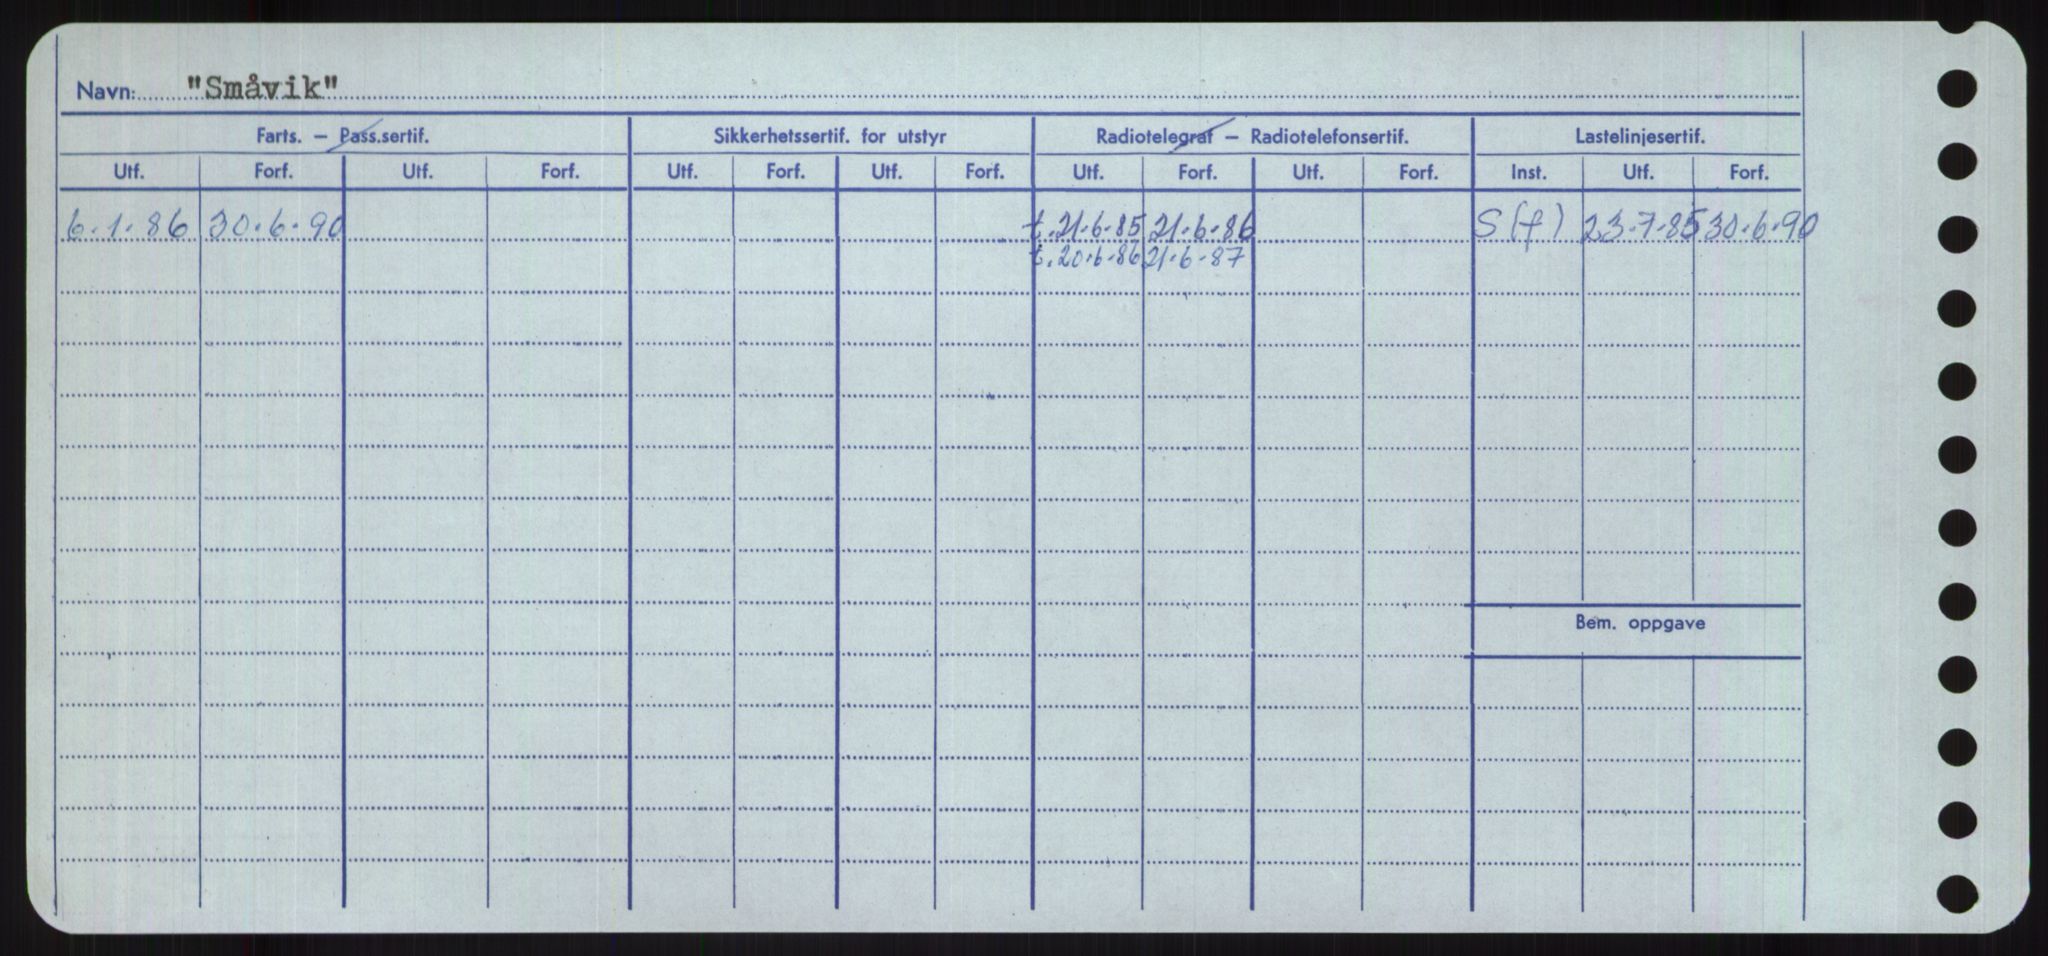 Navn: "Småvik"
Farts. — Pass.sertif. Sikkerhetssertif. for utstyr Radiotelegraf — Radiotelefonsertif. Lastelinjesertif.
Utf. Forf. Utf. Forf. Utf. Forf. Utf. Forf. Utf. Forf. Utf. Forf. Inst. Utf. Forf.
6.1.86 30.6.90 t.21.6.85 21.6.86 S(f) 23.7.85 30.6.90
t.20.6.86 21.6.87
Bem. oppgave